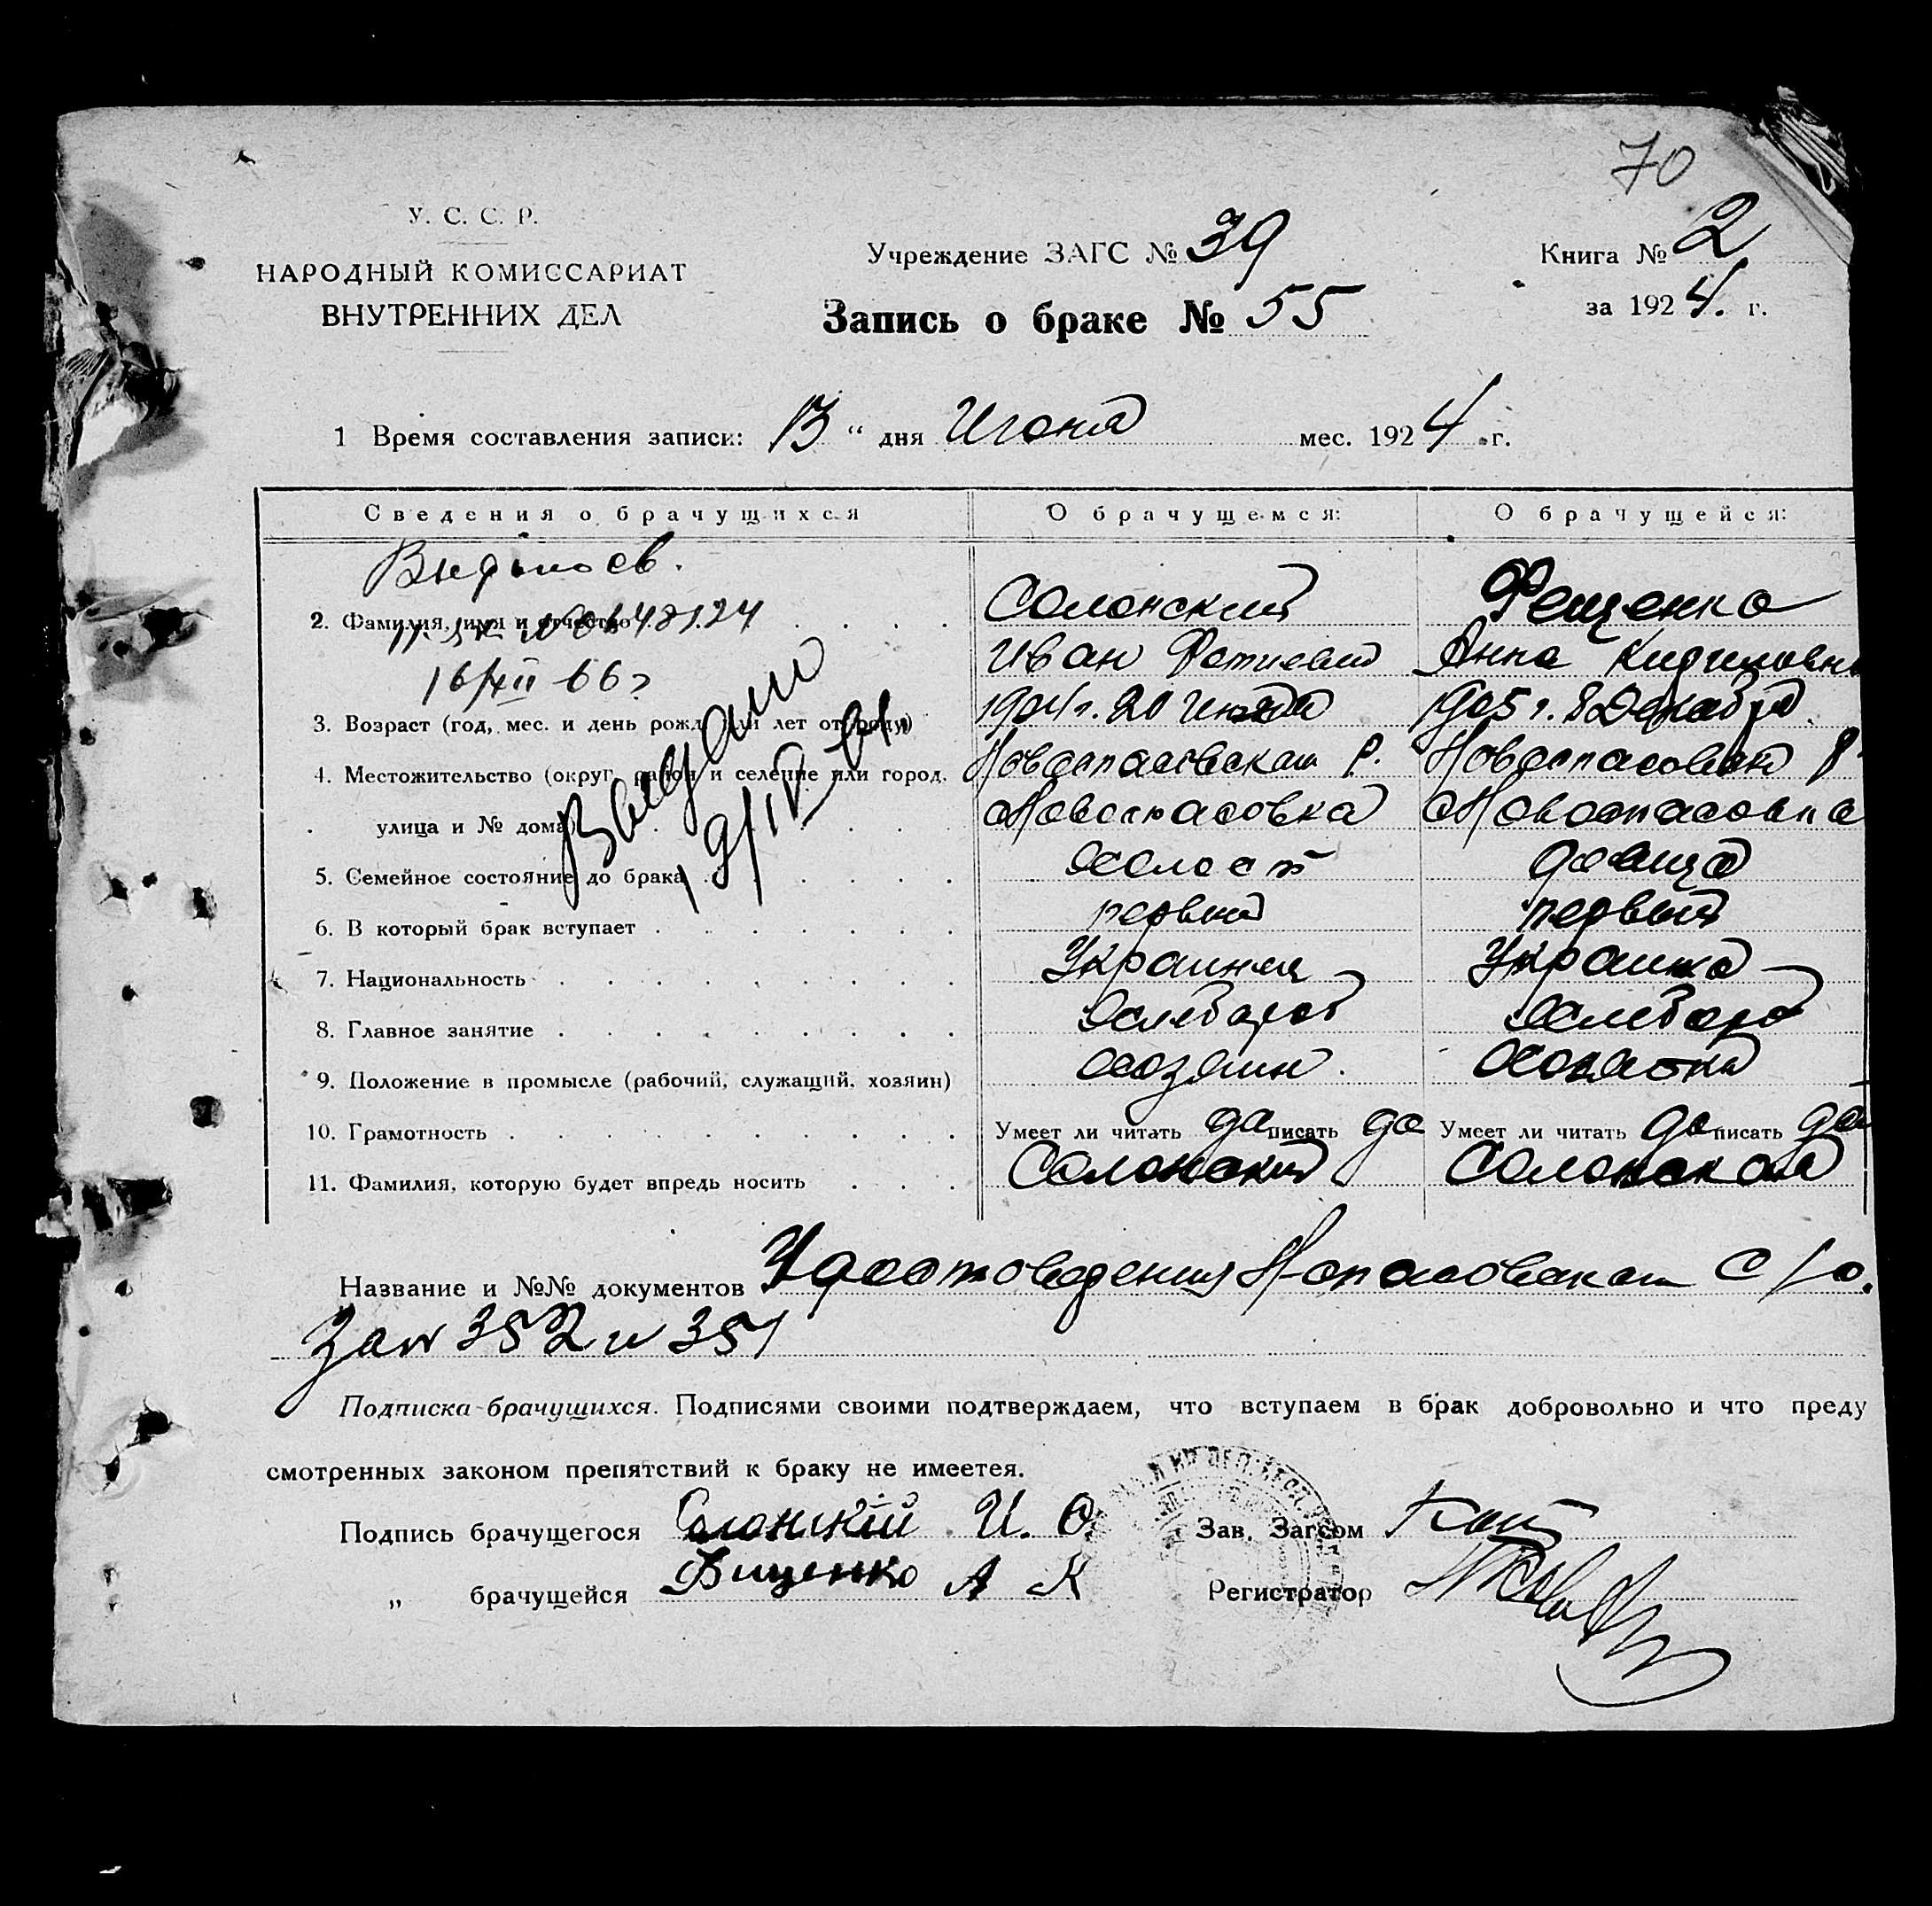 70
У. С. С. Р.
НАРОДНЫЙ КОМИССАРИАТ
ВНУТРЕННИХ ДЕЛ
Учреждение ЗАГС № 39
Запись о браке № 55
Книга № 2
за 1924. г.
1 Время составления записи: 13 “ дня Июня мес. 1924 г.
Сведения о брачущихся О брачущемся: О брачущейся:
2. Фамилия, имя и отчество Солонский Фещенко
16/XII 66г Иван Анна Кириловна
3. Возраст (год, мес. и день рожд. или лет от роду) 1904 г. 20 1905 г. 8 Декабря
4. Местожительство (округ, район и селение или город, Новоспасовская Р. Новоспасовской Р.
улица и № дома) Новоспасовка Новоспасовка
Выдано
19/IV 61.
5. Семейное состояние до брака Холост девица
6. В который брак вступает первый первый
7. Национальность Украинец Украинка
8. Главное занятие Хлебороб Хлебороб
9. Положение в промысле (рабочий, служащий, хозяин) Хозяин. Хозяйка
10. Грамотность Умеет ли читать да писать да Умеет ли читать да писать да
11. Фамилия, которую будет впредь носить Солонский Солонская
Название и №№ документов Удостоверения Н-спасовская С/с.
За № 352 и 351
Подписка брачущихся. Подписями своими подтверждаем, что вступаем в брак добровольно и что преду
смотренных законом препятствий к браку не имеется.
Подпись брачущегося Солонскій И. Ф. Зав. Загсом
„ брачущейся Фищенко А К Регистратор